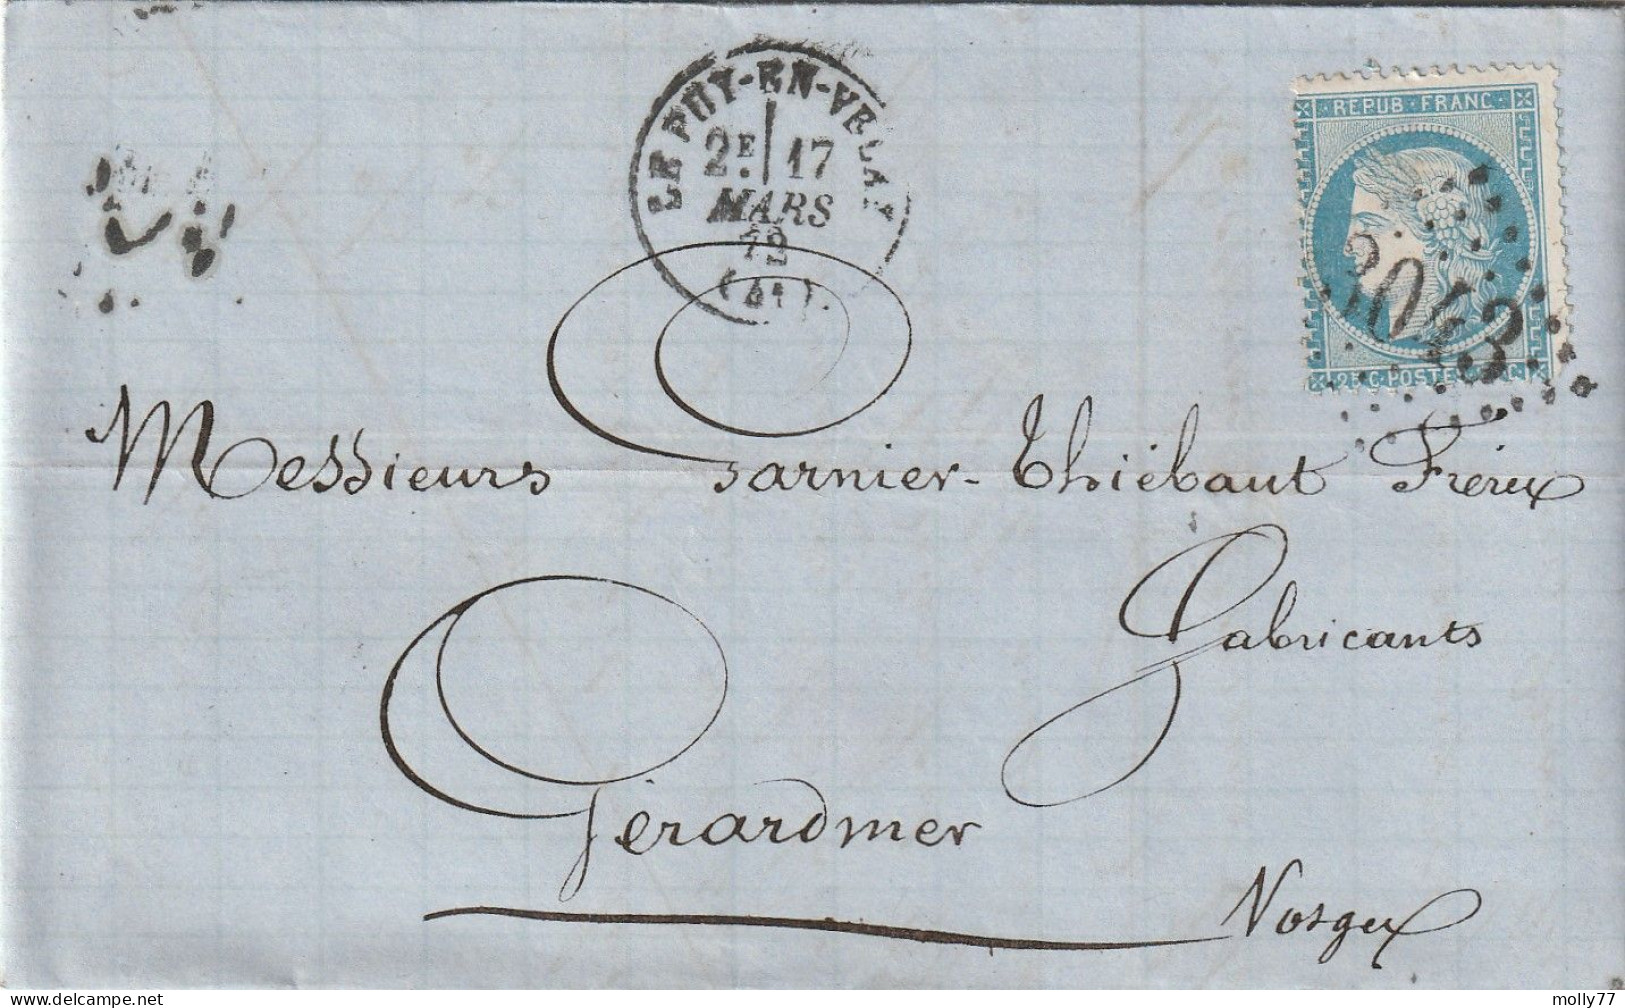 LE PUY-EN-VELAY
2E 17
MARS
72
(41)
REPUB · FRANC
3043
25 C · POSTES · 25 C
Messieurs Garnier-Thiébaut Frères
Fabricants
Gérardmer
Vosges
delcampe.net
molly77